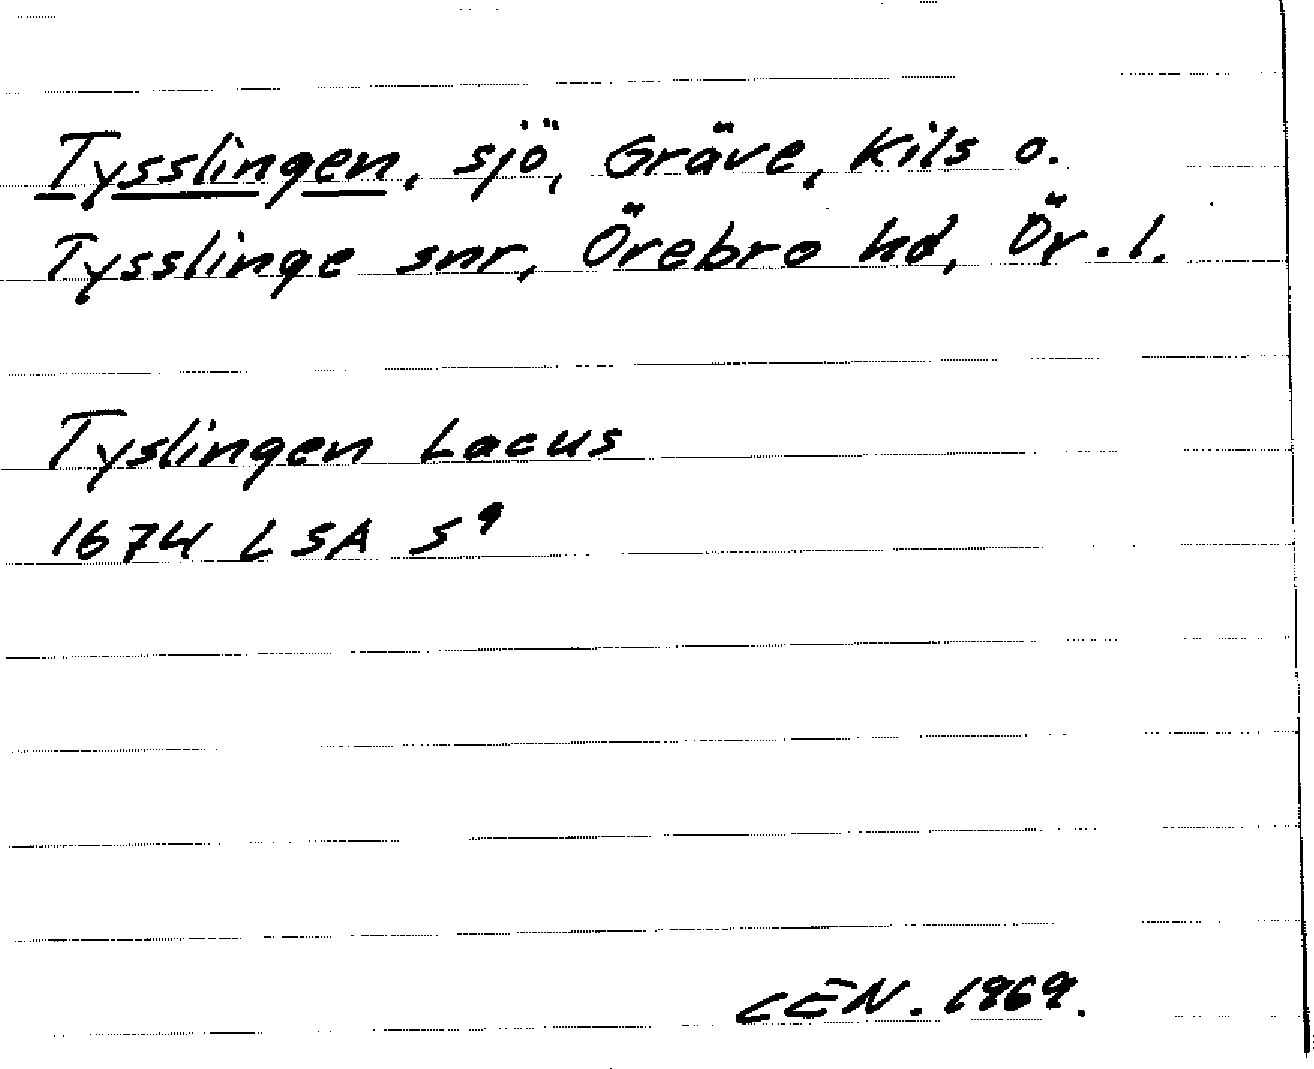 Tysslingen, sjö, Gräve, Kils o.
Tysslinge snr, Örebro hd, Ör. l.
Tyslingen Lacus
1674 LSA S⁹
CEN. 1969.